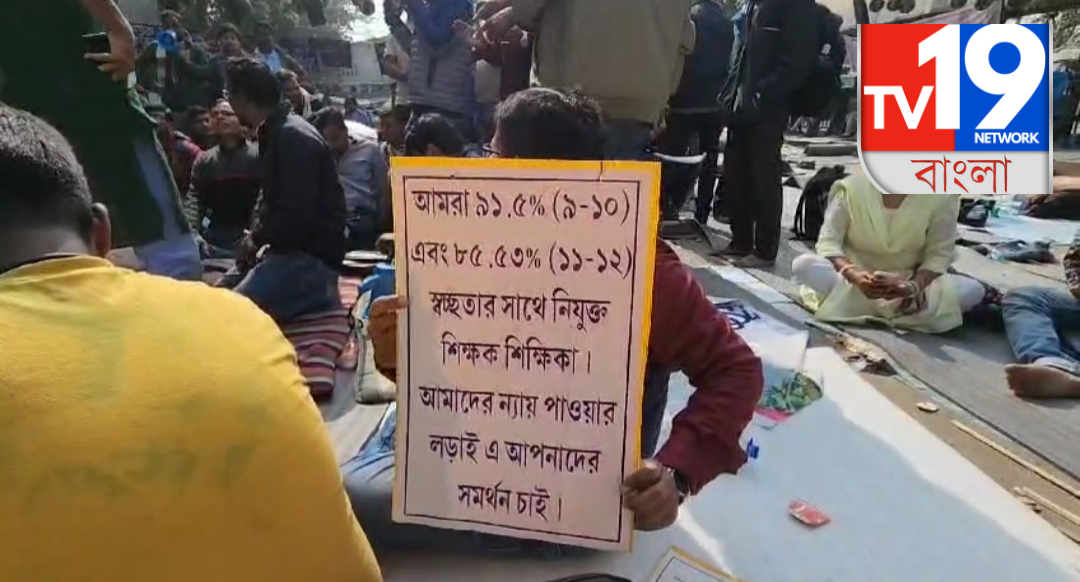 TV19
NETWORK
বাংলা
আমরা ৯১.৫% (৯-১০)
এবং ৮৫.৫৩% (১১-১২)
স্বচ্ছতার সাথে নিযুক্ত
শিক্ষক শিক্ষিকা।
আমাদের ন্যায় পাওয়ার
লড়াই এ আপনাদের
সমর্থন চাই।